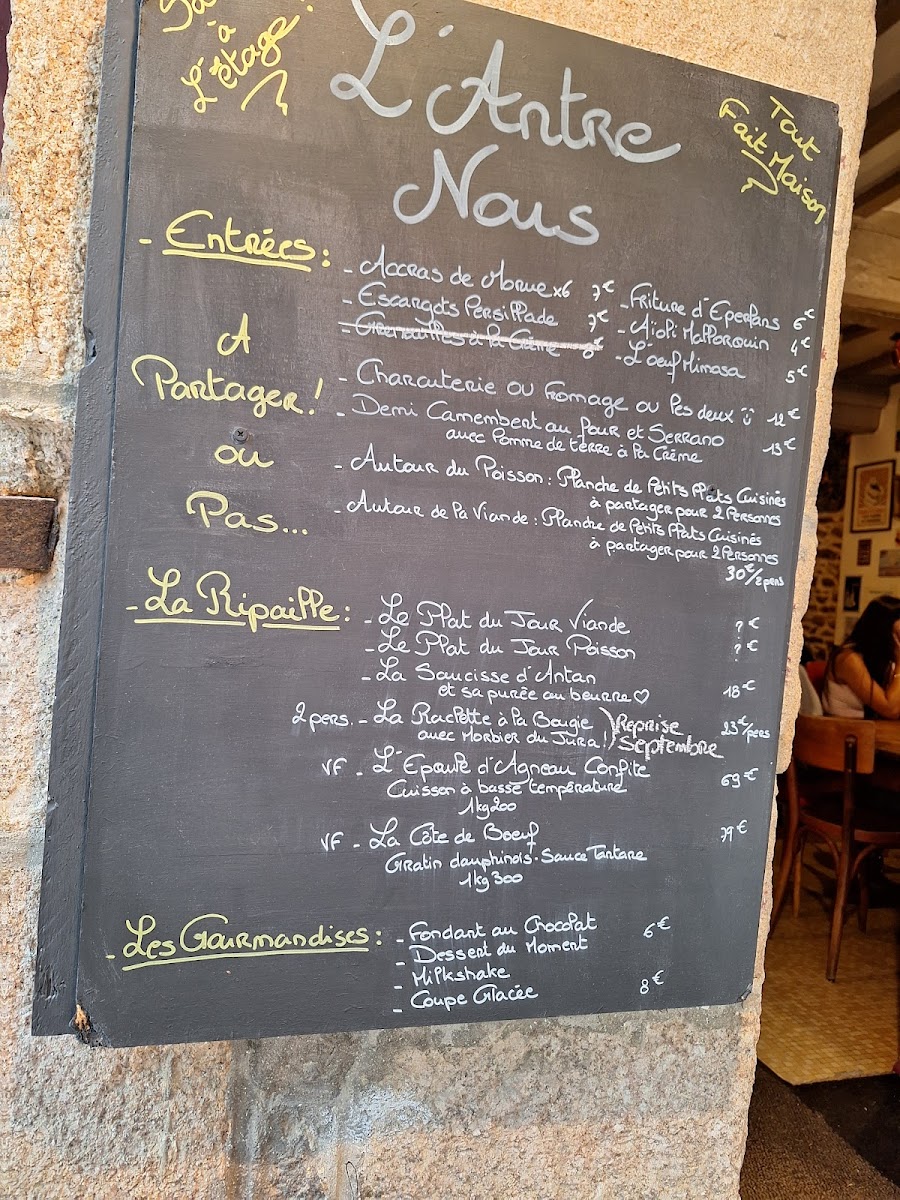 à
L'étage !
L'Antre
Nous
Tout
Fait Maison
- Entrées :
- Accras de Morue x6 7€
- Escargots Persillade 7€
- Grenailles à la Crème
- Friture d'Eperlans 6€
- Aïoli Mallorquin 4€
- L'oeuf Mimosa 5€
A
Partager !
ou
Pas...
- Charcuterie ou Fromage ou les deux 12€
- Demi Camembert au four et Serrano 13€
avec Pomme de terre à la Crème
- Autour du Poisson : Planche de Petits Plats Cuisinés
à partager pour 2 Personnes
- Autour de la Viande : Planche de Petits Plats Cuisinés
à partager pour 2 Personnes
30€/2 pers
- La Ripaille :
- Le Plat du Jour Viande ? €
- Le Plat du Jour Poisson ? €
- La Saucisse d'Antan
et sa purée au beurre ♡ 18€
2 pers. - La Raclette à la Bougie ) Reprise 23€/pers
avec Morbier du Jura ! ) Septembre
VF - L'Epaule d'Agneau Confite 69€
Cuisson à basse température
1kg200
VF - La Côte de Boeuf 79€
Gratin dauphinois - Sauce Tartare
1kg300
- Les Gourmandises :
- Fondant au Chocolat 6€
- Dessert du Moment
- Milkshake
- Coupe Glacée 8€